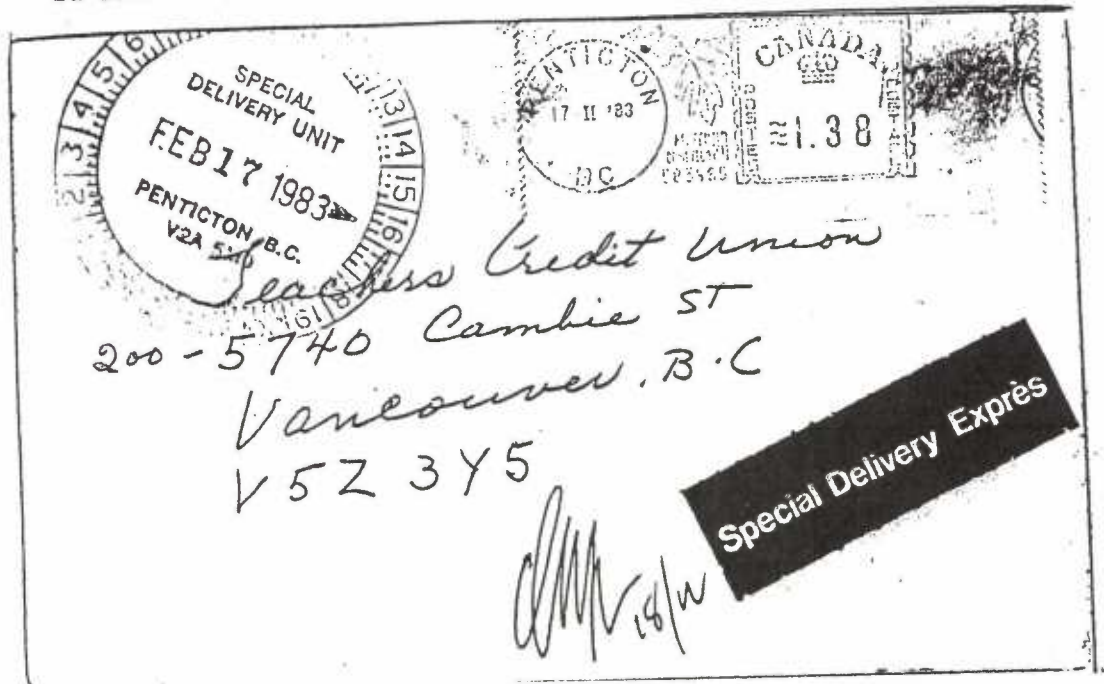 6
5
4
3
2
SPECIAL
DELIVERY UNIT
FEB 17 1983
PENTICTON, B.C.
V2A
13
14
15
16
18
19
PENTICTON
17 II '83
BC
CANADA
POSTES
1.38
Teachers Credit Union
200-5740 Cambie ST
Vancouver. B.C
V5Z 3Y5
Special Delivery Exprès
18/